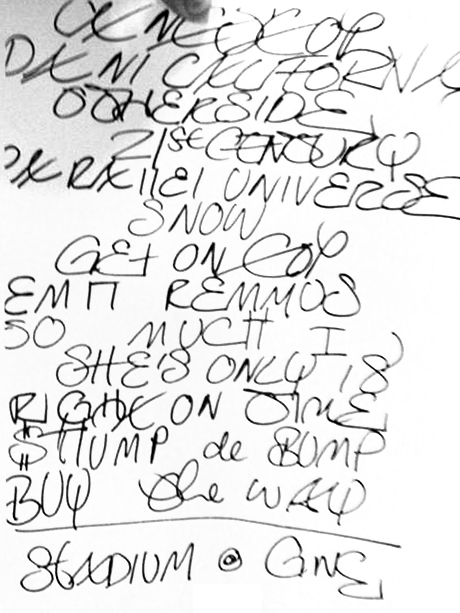 CAN'T STOP
DANI CALIFORNIA
OTHERSIDE
21st CENTURY
PARALLEL UNIVERSE
SNOW
GET ON TOP
EMIT REMMUS
SO MUCH I
SHE'S ONLY 18
RIGHT ON TIME
HUMP de BUMP
BUY the WAY
STADIUM